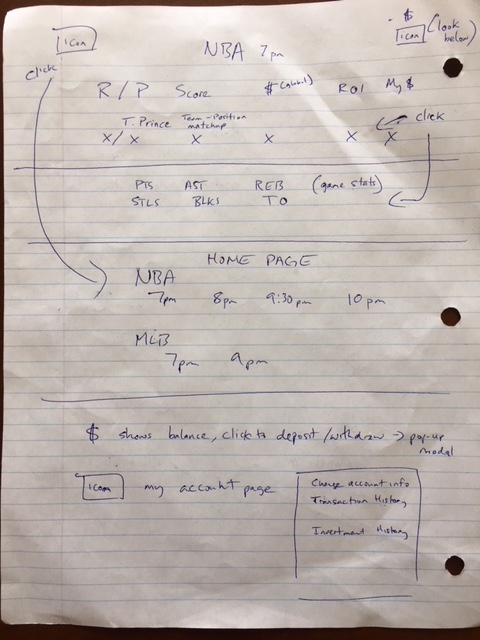 $
icon
icon (look below)
NBA 7pm
click
R/P Score $(global) ROI My $
click
T. Prince Team-Position matchup
X/X X X X X
PTS AST REB (game stats)
STLS BLKS TO
HOME PAGE
NBA
7pm 8pm 9:30pm 10pm
MLB
7pm 9pm
$ shows balance, click to deposit/withdraw → pop-up modal
icon my account page
Change account info
Transaction History
Investment History